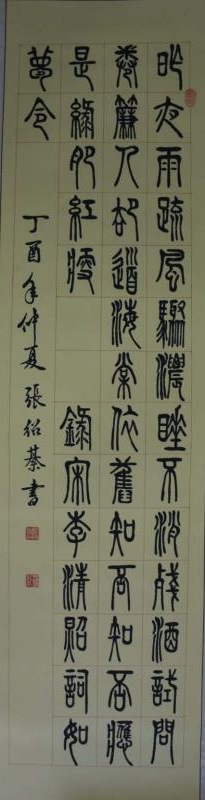 昨夜雨疏風驟濃睡不消殘酒試問
卷簾人却道海棠依舊知否知否應
是綠肥紅瘦 錄宋李清照詞如
夢令
丁酉年仲夏張紹綦書